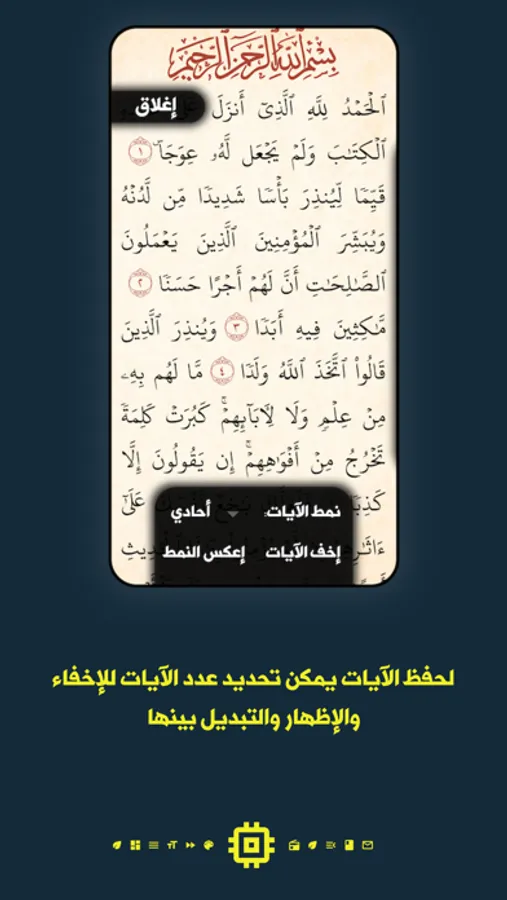 بِسْمِ ٱللَّهِ ٱلرَّحْمَٰنِ ٱلرَّحِيمِ
ٱلْحَمْدُ لِلَّهِ ٱلَّذِىٓ أَنزَلَ
إغلاق
ٱلْكِتَٰبَ وَلَمْ يَجْعَل لَّهُۥ عِوَجَاۜ ١
قَيِّمًا لِّيُنذِرَ بَأْسًا شَدِيدًا مِّن لَّدُنْهُ
وَيُبَشِّرَ ٱلْمُؤْمِنِينَ ٱلَّذِينَ يَعْمَلُونَ
ٱلصَّٰلِحَٰتِ أَنَّ لَهُمْ أَجْرًا حَسَنًا ٢
مَّٰكِثِينَ فِيهِ أَبَدًا ٣ وَيُنذِرَ ٱلَّذِينَ
قَالُوا۟ ٱتَّخَذَ ٱللَّهُ وَلَدًا ٤ مَّا لَهُم بِهِۦ
مِنْ عِلْمٍ وَلَا لِـَٔابَآئِهِمْ ۚ كَبُرَتْ كَلِمَةً
تَخْرُجُ مِنْ أَفْوَٰهِهِمْ ۚ إِن يَقُولُونَ إِلَّا
عَلَىٰٓ
نمط الآيات: أحادي
إخف الآيات إعكس النمط
لحفظ الآيات يمكن تحديد عدد الآيات للإخفاء
والإظهار والتبديل بينها